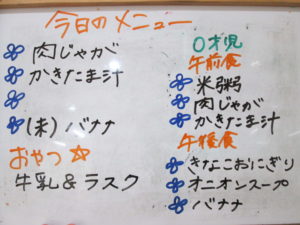 今日のメニュー
肉じゃが
かきたま汁
(未) バナナ
おやつ
牛乳&ラスク
0才児
午前食
米粥
肉じゃが
かきたま汁
午後食
きなこおにぎり
オニオンスープ
バナナ